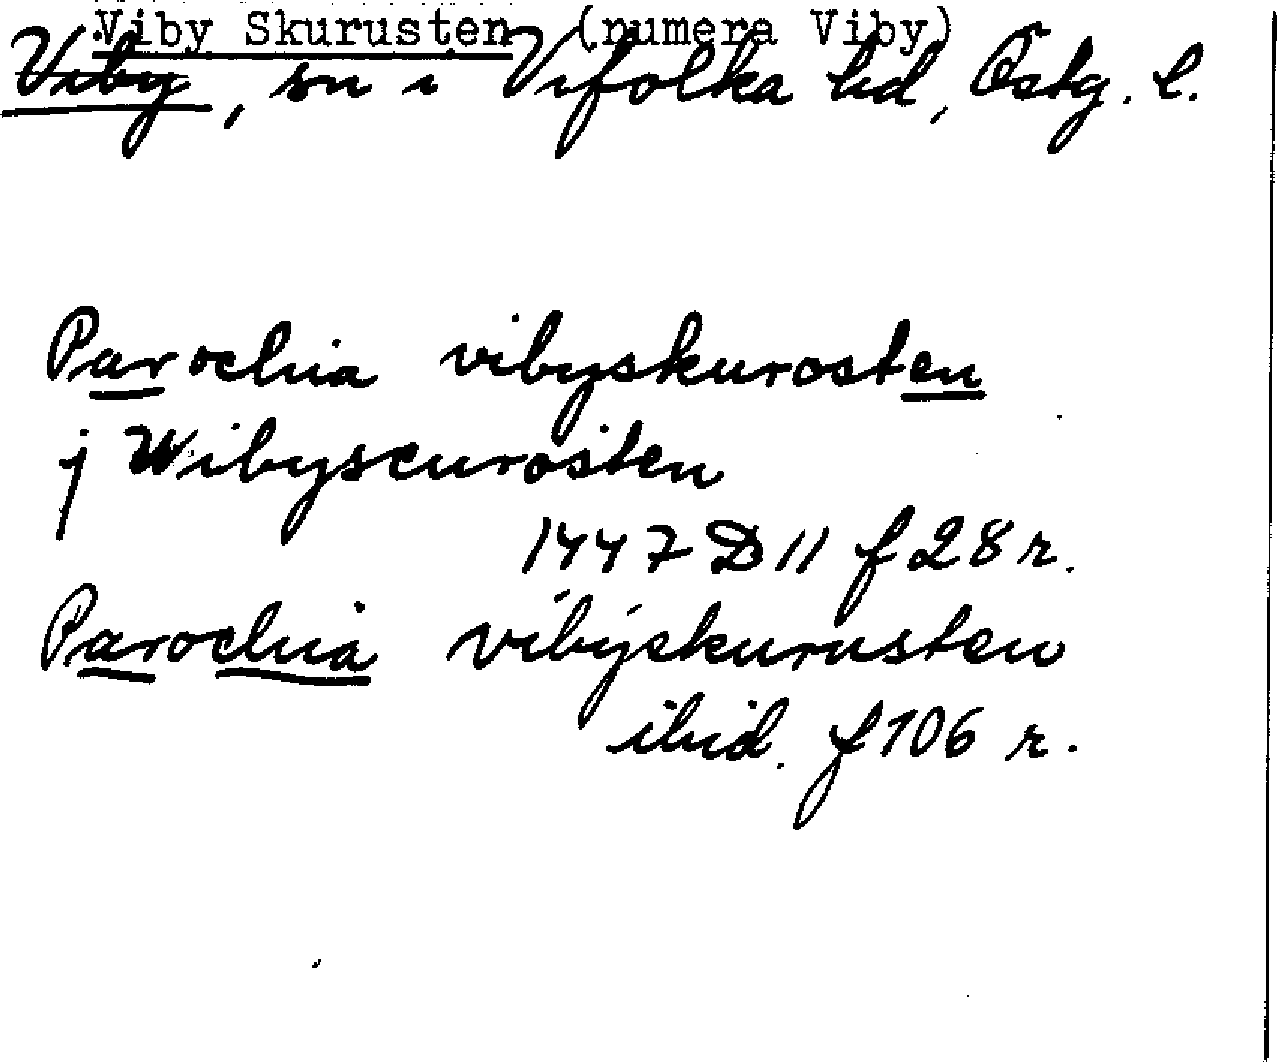 Viby Skurusten (numera Viby)
Viby, sn i Vifolka hd, Östg. l.
Parochia vibyskurosten
j Wibyscurosten
1447 D 11 f 28 r.
Parochia vibyskurusten
ibid. f 106 r.